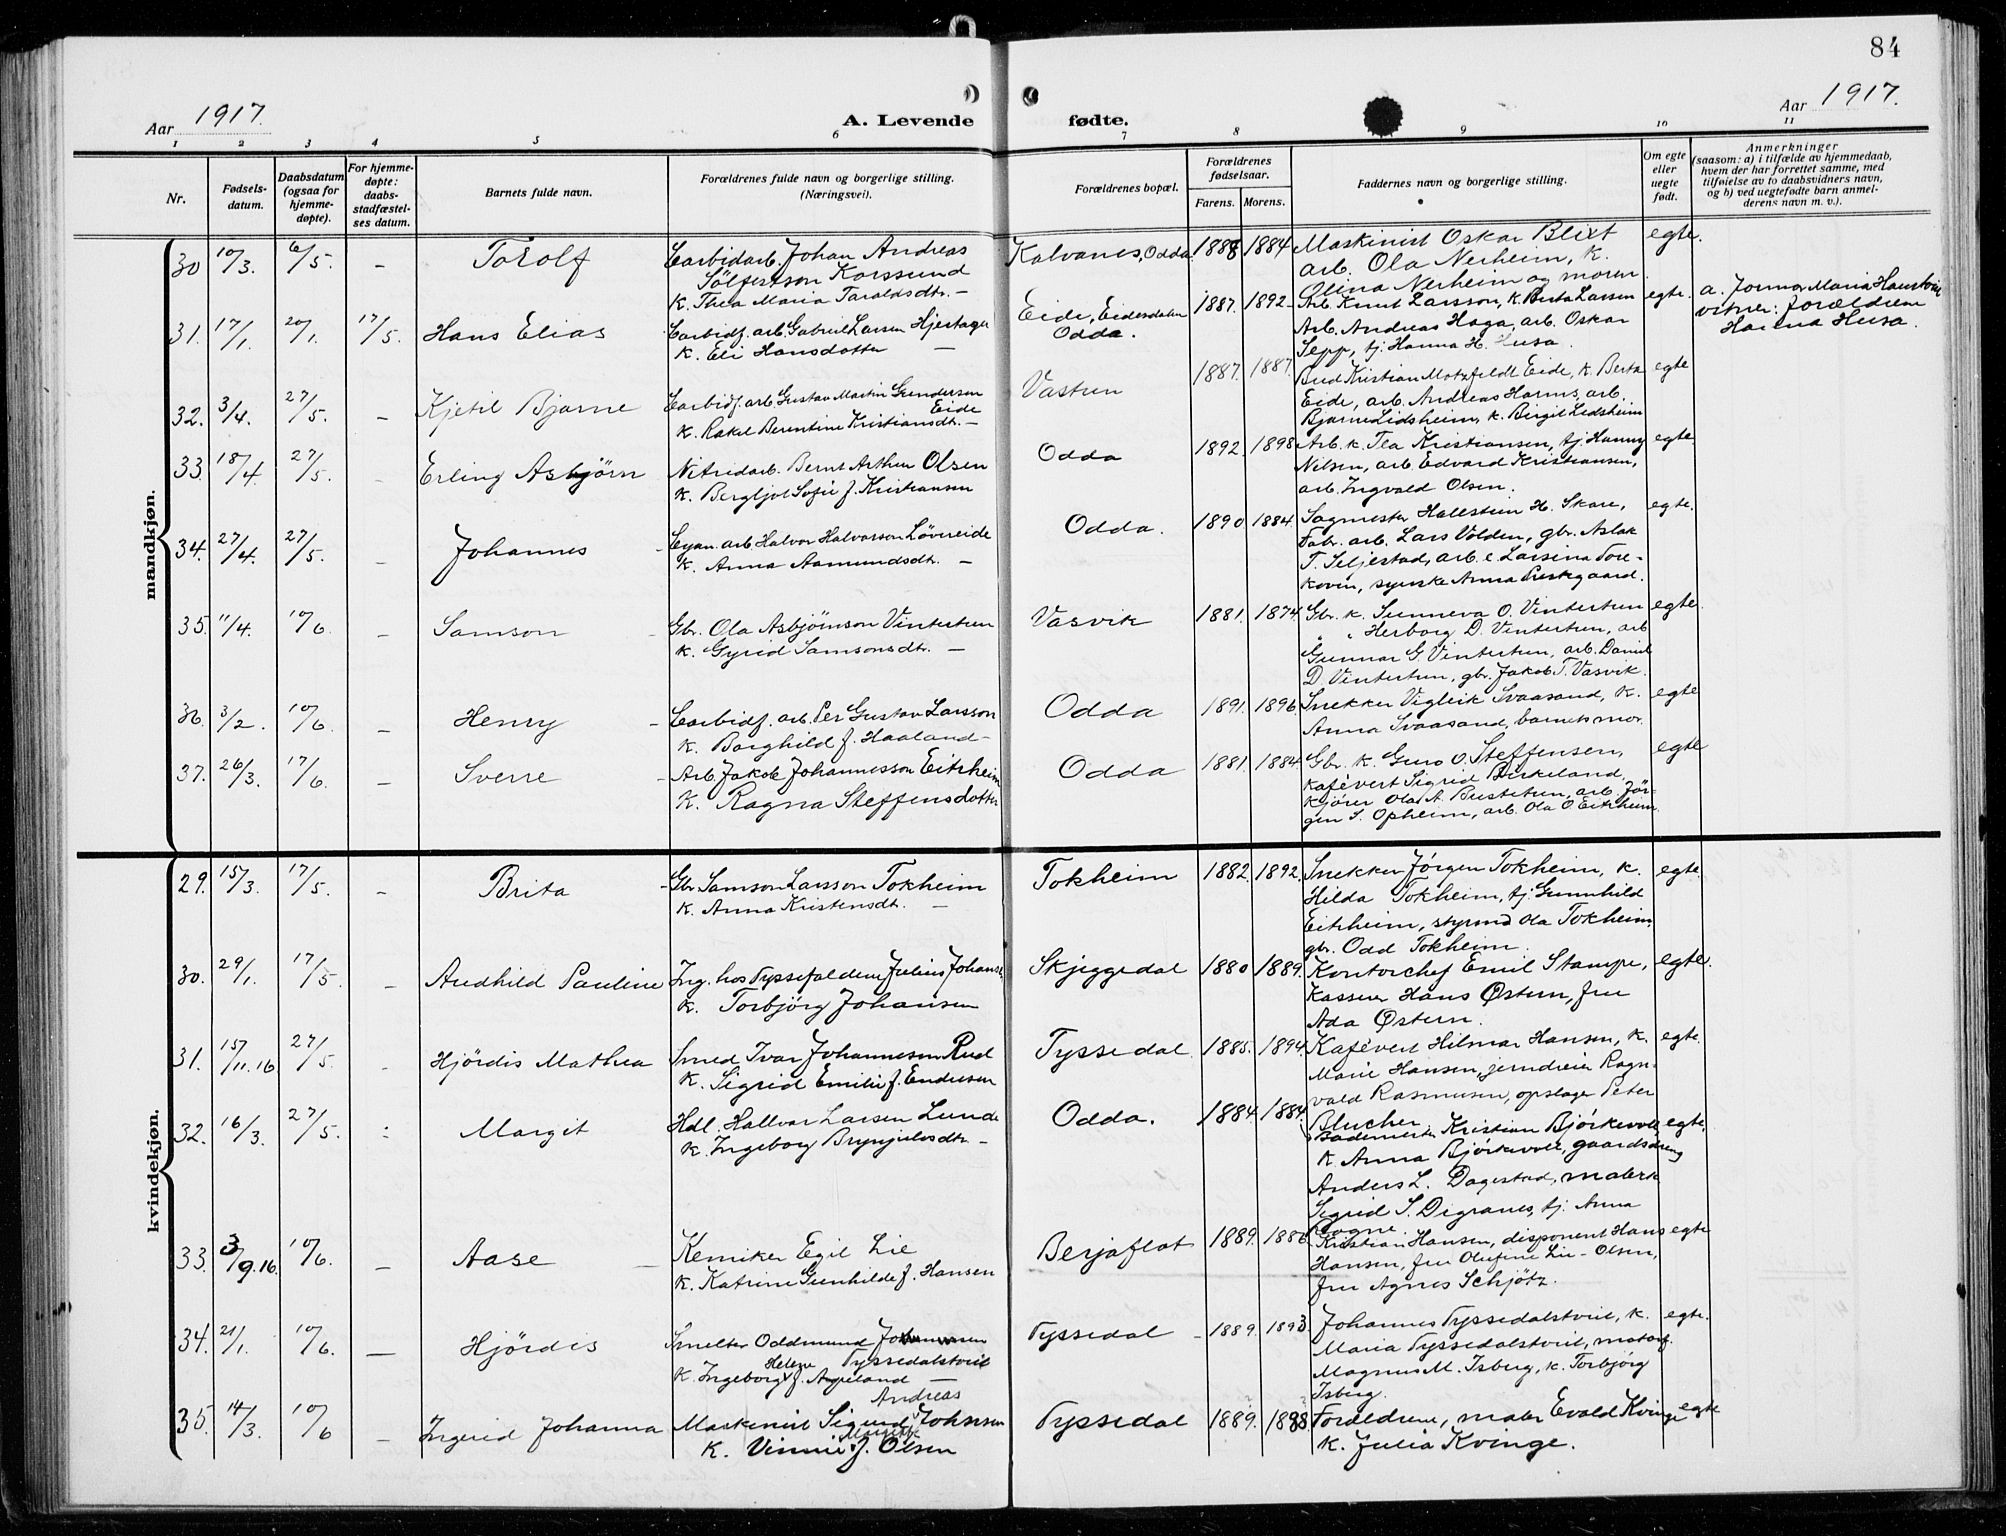 84
Aar 1917.
A. Levende fødte.
Aar 1917.
1 2 3 4 5 6 7 8 9 10 11
Nr.
Fødsels-
datum.
Daabsdatum
(ogsaa for
hjemme-
døpte).
For hjemme-
døpte:
daabs-
stadfæstel-
ses datum.
Barnets fulde navn.
Forældrenes fulde navn og borgerlige stilling.
(Næringsvei).
Forældrenes bopæl.
Forældrenes
fødselsaar.
Farens. Morens.
Faddernes navn og borgerlige stilling.
Om egte
eller
uegte
født.
Anmerkninger
(saasom: a) i tilfælde av hjemmedaab,
hvem der har forrettet samme, med
tilføielse av to daabsvidners navn,
og b) ved uegtefødte barn anmel-
derens navn m. v.).
mandkjøn.
30 10/3. 6/5. - Torolf Carbidarb. Johan Andreas
Sölfestson Korssund
K. Thea Maria Taraldsdtr. -
Kalvanes, Odda. 1888 1884 Maskinist Oskar Blixt egte.
arb. Ola Nerheim, k.
Olina Nerheim og moren.
31. 17/1. 20/1. 17/5. Hans Elias Carbidf. arb. Gabriel Larsen Hjertager
K. Eli Hansdotter -
Eide, Eidesdalen
Odda.
1887. 1892. Arb. Knut Larsson, k. Berta Larsen egte.
Arb. Andreas Haga, arb. Oskar
Sepp, tj. Hanna H. Husa.
a. Jormor Maria
vitner: forældrene
Hanna Husa.
32. 3/4. 27/5. - Kjetil Bjarne Carbidf. arb. Gustav Martin Gundersen
Eide
K. Rakel Berentine Kristiansdtr. -
Vastun 1887. 1887. Bud Kristian Motzfeldt Eide, k. Berta egte
Eide, arb. Andreas Harms, arb.
Bjarne Lidsheim, k. Birgit Lidsheim
33. 18/4 27/5. - Erling Asbjörn Nitridarb. Bernt Arthur Olsen
K. Bergljot Sofie f. Kristiansen
Odda 1892. 1898 Arb. k. Tea Kristiansen, tj. Hanny egte
Nilsen, arb. Edvard Kristiansen,
arb. Ingvald Olsen.
34. 27/4. 27/5. - Johannes - Cyan. arb. Halvor Halvorson Lövreide
K. Anna Aamundsdtr. -
Odda. 1890 1884. Sagmester Hallstein H. Skare, egte.
Fabr. arb. Lars Volden, gbr. Aslak
T. Seljestad, arb. e. Larsina Tore-
Kovin, syerske Anna Prestegaard.
35. 11/4. 10/6. - Samson - Gbr. Ola Asbjörnson Vintertun
K. Gyrid Samsonsdtr. -
Vasvik 1881. 1874. Gbr. k. Sunneva O. Vintertun egte.
" " Herborg D. Vintertun, arb
Gunnar G. Vintertun, arb. Daniel
D. Vintertun, gbr. Jakob T. Vasvik.
36. 3/2. 10/6. - Henry - Carbidf. arb. Per Gustav Larsson
K. Borghild f. Haaland -
Odda 1891. 1896. Snekker Vigleik Svaasand, k. egte
Anna Svaasand, barnets mor.
37. 26/3. 17/6. - Sverre - Arb. Jakob Johannesson Eitrheim
K. Ragna Steffensdotter
Odda 1881. 1884. Gbr. k. Guro O. Steffensen, egte
kafévert Sigrid Birkeland,
kjörer Ola A. Bustetun, arb. Jör-
gen S. Opheim, arb. Ola O. Eitrheim.
kvindekjøn.
29. 15/3. 17/5. - Brita - Gbr Samson Larsson Tokheim
K. Anna Kristensdt. -
Tokheim 1882. 1892. Snekker Jörgen Tokheim, k. egte.
Hilda Tokheim, tj. Gunnhild
Eitrheim, styrmd Ola Tokheim,
gbr. Odd Tokheim.
30. 29/1. 17/5. - Audhild Pauline Ing. hos Tyssefaldene Julius Johans.
K. Torbjörg Johansen
Skjeggedal 1880 1889. Kontorchef Emil Stampe, egte.
Kasserer Hans Østern, fru
Ada Østern.
31. 15/11.16 27/5. - Hjördis Mathea Smed Ivar Johannesen Rud
K. Sigrid Emilie f. Endresen
Tyssedal 1885. 1894. Kafévert Hilmar Hansen, k. egte.
Marie Hansen, jerndreier Ragn-
vald Rasmussen, opslager Peter
Blucher.
32. 16/3. 27/5. : Margit Hdl. Hallvar Larsen Lunde
K. Ingeborg Brynjulvsdtr. -
Odda. 1884. 1884. Bademester Kristian Björkevoll egte.
K. Anna Björkevoll, gaardsdreng
Anders L. Dagestad, malerk.
Sigrid S. Digranes, tj. Anna
Rogne.
33. 3/9.16. 10/6. - Aase - Kemiker Egil Lie
K. Katrine Gunhilde f. Hansen
Berjaflot 1889. 1886. Kristian Hansen, disponent Hans egte
Hansen, fru Olufine Lie-Olsen,
fru Agnes Schjötz.
34. 21/1. 10/6. - Hjördis Smelter Oddmund Johannesen
Helene Tyssedalstveit
K. Ingeborg f. Apeland -
Tyssedal - 1889. 1893 Johannes Tyssedalstveit, k. egte.
Maria Tyssedalstveit, motorf.
Magnus M. Isberg, k. Torbjörg
Isberg.
35 14/3. 10/6 - Ingerid Johanna Andreas
Maskinist Sigurd Johnsen
Margithe
K. Vinnie f. Olsen
Tyssedal 1889. 1888. Foreldrene, maler Evald Kvinge egte
K. Julia Kvinge.